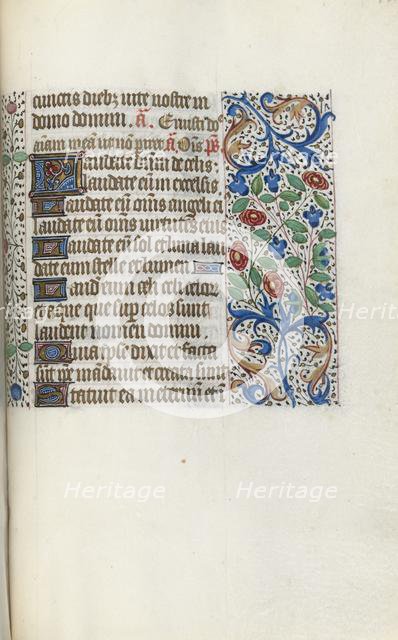 cunctis diebz vite nostre in
domo domini. a. Eruisti do
animam meam ut non periret. a. Ois ps
Laudate dnm de celis
laudate eum in excelsis
Laudate eu oms angeli ei
laudate eu oms virtutes eius
Laudate eu sol et luna lau
date eum stelle et lumen
Laudent eu celi celorum
aque que super celos sunt
laudent nomen domini
Quia ipse dixit et facta
sunt ipe madavit et creata sunt
Statuit ea in eternum et i
Heritage
Heritage
Heritage
Heritage
Heritage